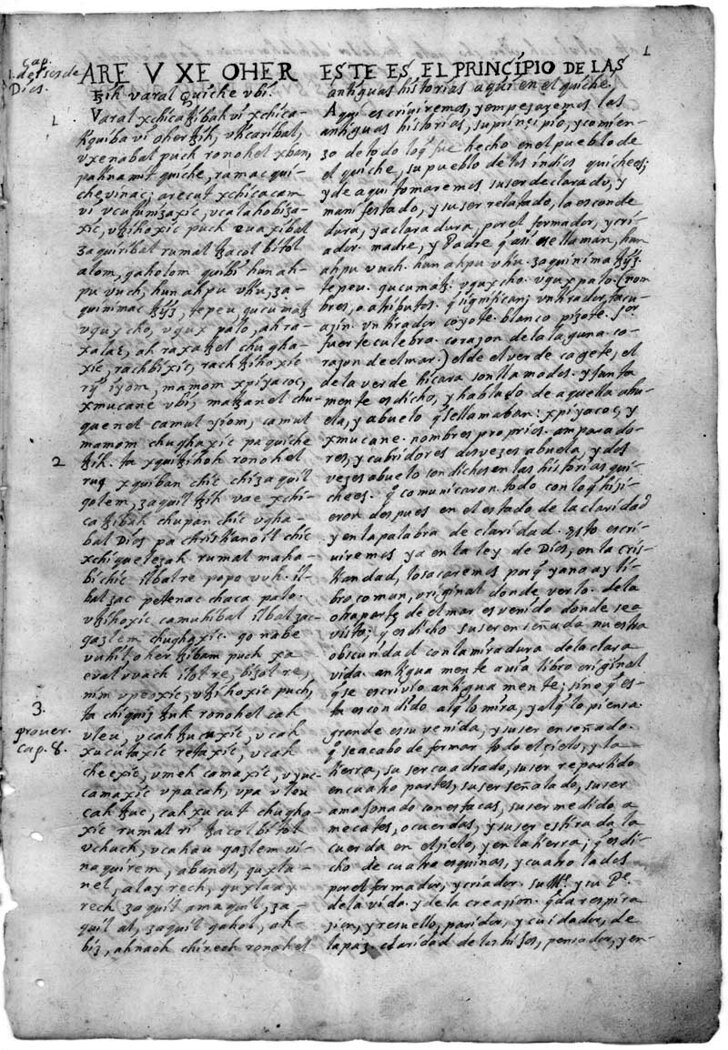 1
Cap.
del ser de
Dios.
1
2
3.
prover.
cap. 8.
ARE V XE OHER
tzih varal Quiche vbi.
Varal xchicatzibah vi xchica-
tiquiba vi oher tzih, vticaribal,
vxenabal puch ronohel xban,
pa tinamit quiche, ramac qui-
che vinac; arecut xchicacam
vi vcutunizaxic, vcalahobiza-
xic, vtzihoxic puch euaxibal
zaquiribal rumal tzacol bitol
alom, qaholom quibi hun ah-
pu vuch, hun ahpu vtiu, za-
quinimac tzyz, tepeu gucumatz
vqux cho, vqux palo, ah ra-
xalaq, ah raxatzel chugha-
xic, rachbixic, rachtzihoxic
rij iyom, mamom xpiyacoc,
xmucane vbi, matzanel chu-
quenel camul yiom, camul
mamom chughaxic pa quiche
tzih. ta xquitzihoh ronohel
ruq xquiban chic chi zaquil
golem, zaquil tzih vae xchi-
catzibah chupan chic vgha-
bal Dios pa christianoil chic
xchiquelezah rumal maha-
bi chic ilbal re popo vuh. il-
bal zac petenac chaca palo.
vtzihoxic camuhibal ilbal zac
gazlem chughaxic. go nabe
vuhil, oher tzibam puch xa
eval vvach ilol re, bizol re,
nim vpeoxic, vtzihoxic puch,
ta chiquiz tzuk ronohel cah
vleu, vcah tzucuxic, vcah
xucutaxic retaxic, vcah
cheexic, vmeh camaxic, vyuc-
camaxic vpa cah, vpa vleu
cah tzuc, cah xucut chugha-
xic rumal ri tzacol bitol
vchuch, vcahau gazlem vi-
naquirem, abanel, quxla-
nel, alay rech, quxlaay
rech zaquil amaquil, za-
quil al, zaquil qahol, ah-
biz, ahnaoh chirech ronohel
ESTE ES EL PRINCIPIO DE LAS
antiguas historias aqui en el quiche,
Aqui escriviremos, y empeçaremos las
antiguas historias, su principio, y comien-
zo de todo lo q fue hecho en el pueblo de
el quiche, su pueblo de los indios quichees;
y de aqui tomaremos su ser declarado, y
manifestado, y su ser relatado, la esconde
dura, y aclaradura, por el formador, y cri-
ador. madre, y Padre q asi se llaman, hun
ahpu vuch. hun ahpu vtiu. zaquinima tzyz.
tepeu. gucumatz. vqux cho. vqux palo. (nom
bres, o atributos. q significan; vn tirador, tacu-
azin. vn tirador coyote. blanco pizote. for
fuerte culebra. corazon de la laguna. co-
razon de el mar.) el de el verde cagete, el
de la verde hicara son llamados. y junta
mente es dicho, y hablado de aquella abu-
ela, y abuelo q se llamaban: xpiyacoc, y
xmucane. nombres proprios. amparado-
res, y cubridores dos vezes abuela, y dos
vezes abuelo son dichos en las historias qui-
chees. q comunicaron. todo con lo q hizi-
eron despues en el estado de la claridad
y en la palabra de claridad. Esto escri-
viremos ya en la ley de Dios, en la cris-
tiandad, lo sacaremos porq ya no ay li-
bro comun, original donde verlo. de la
otra parte de el mar es venido donde sea
visto; y es dicho su ser enseñada nuestra
obscuridad con la miradura de la clara
vida. antiguamente avia libro original
q se escrivio antiguamente; sino q es-
ta escondido al q lo mira, y al q lo piensa.
grande es su venida, y su ser enseñado.
q se acabo de formar todo el cielo, y la
tierra, su ser cuadrado, su ser repartido
en cuatro partes, su ser señalado, su ser
amojonado con estacas, su ser medido a
mecates, o cuerdas, y su ser estirada la
cuerda en el cielo, y en la tierra; q es di-
cho de cuatro esquinas, y cuatro lados
por el formador, y criador. su Me. y su Pe.
de la vida. y de la creacion. q da respira-
cion, y resuello, paridor, y cuidador, de
la paz. claridad de los hijos, pensador, y en-